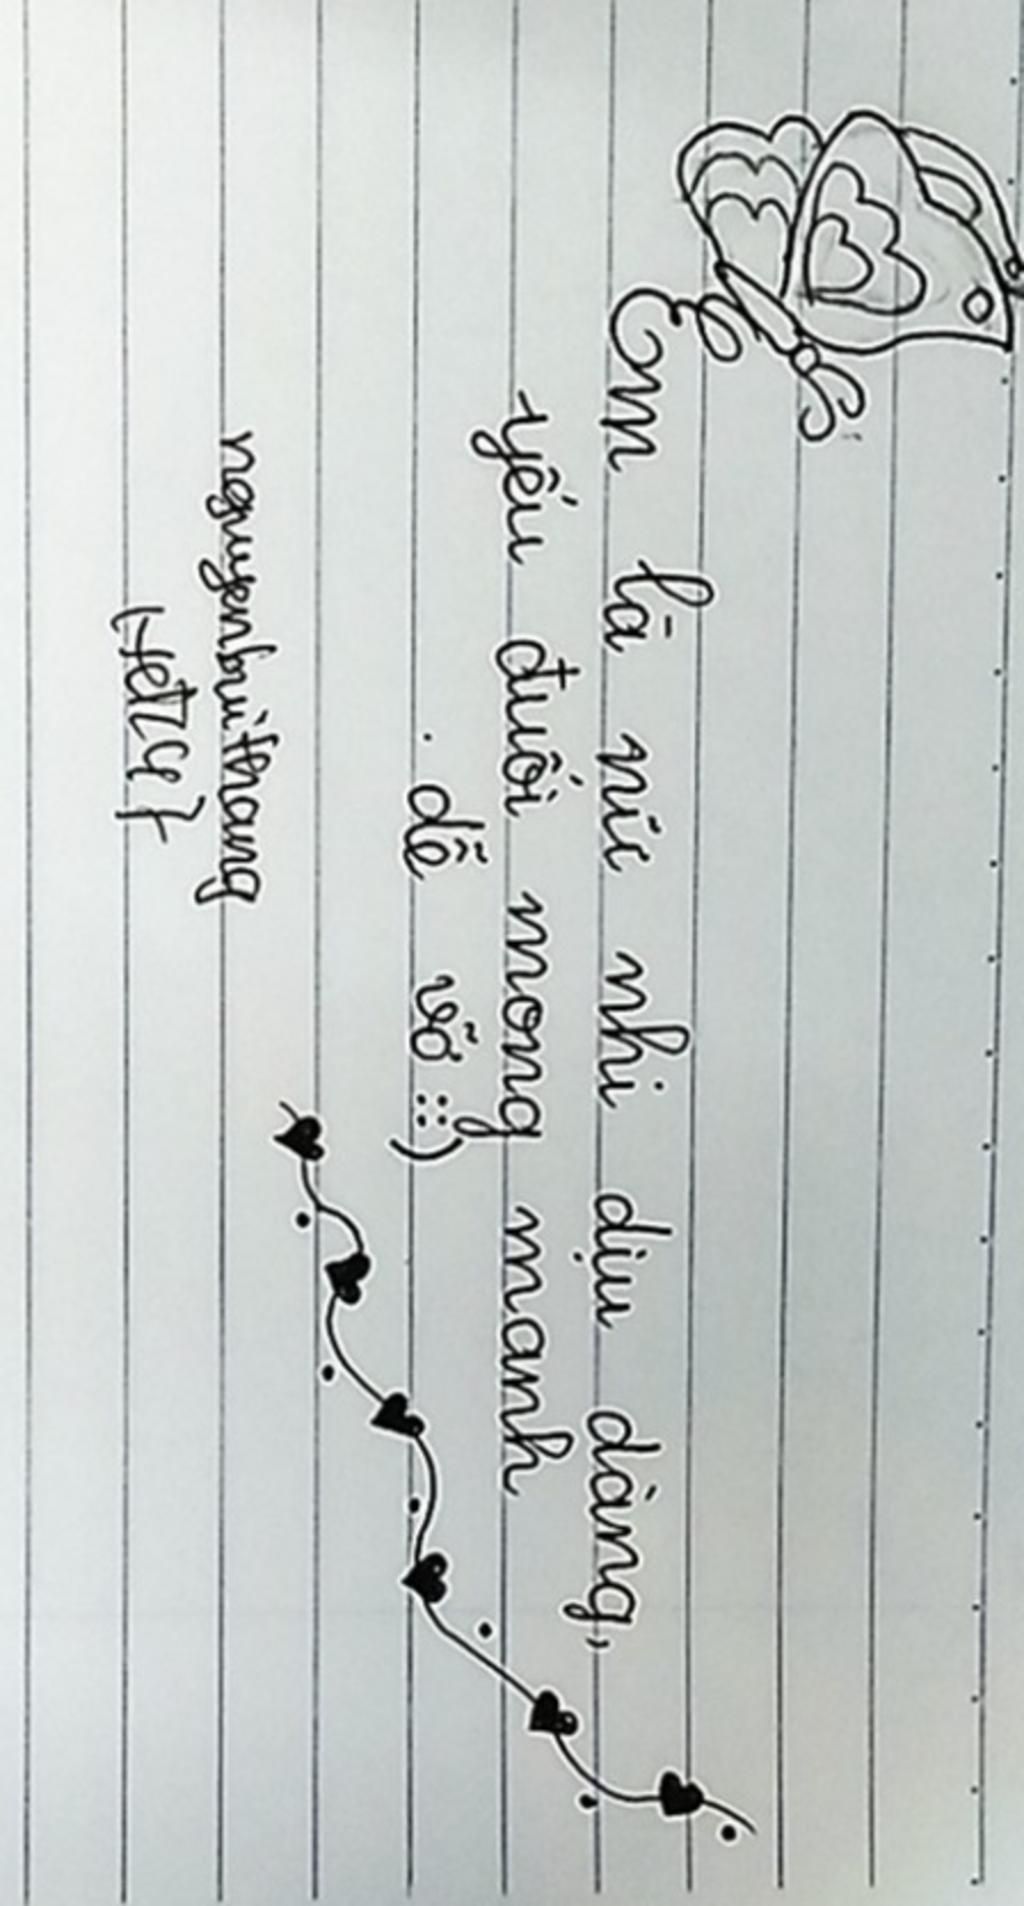 Em là nữ nhi dịu dàng,
yếu đuối mong manh
dễ vỡ ::)
nguyenbuithang